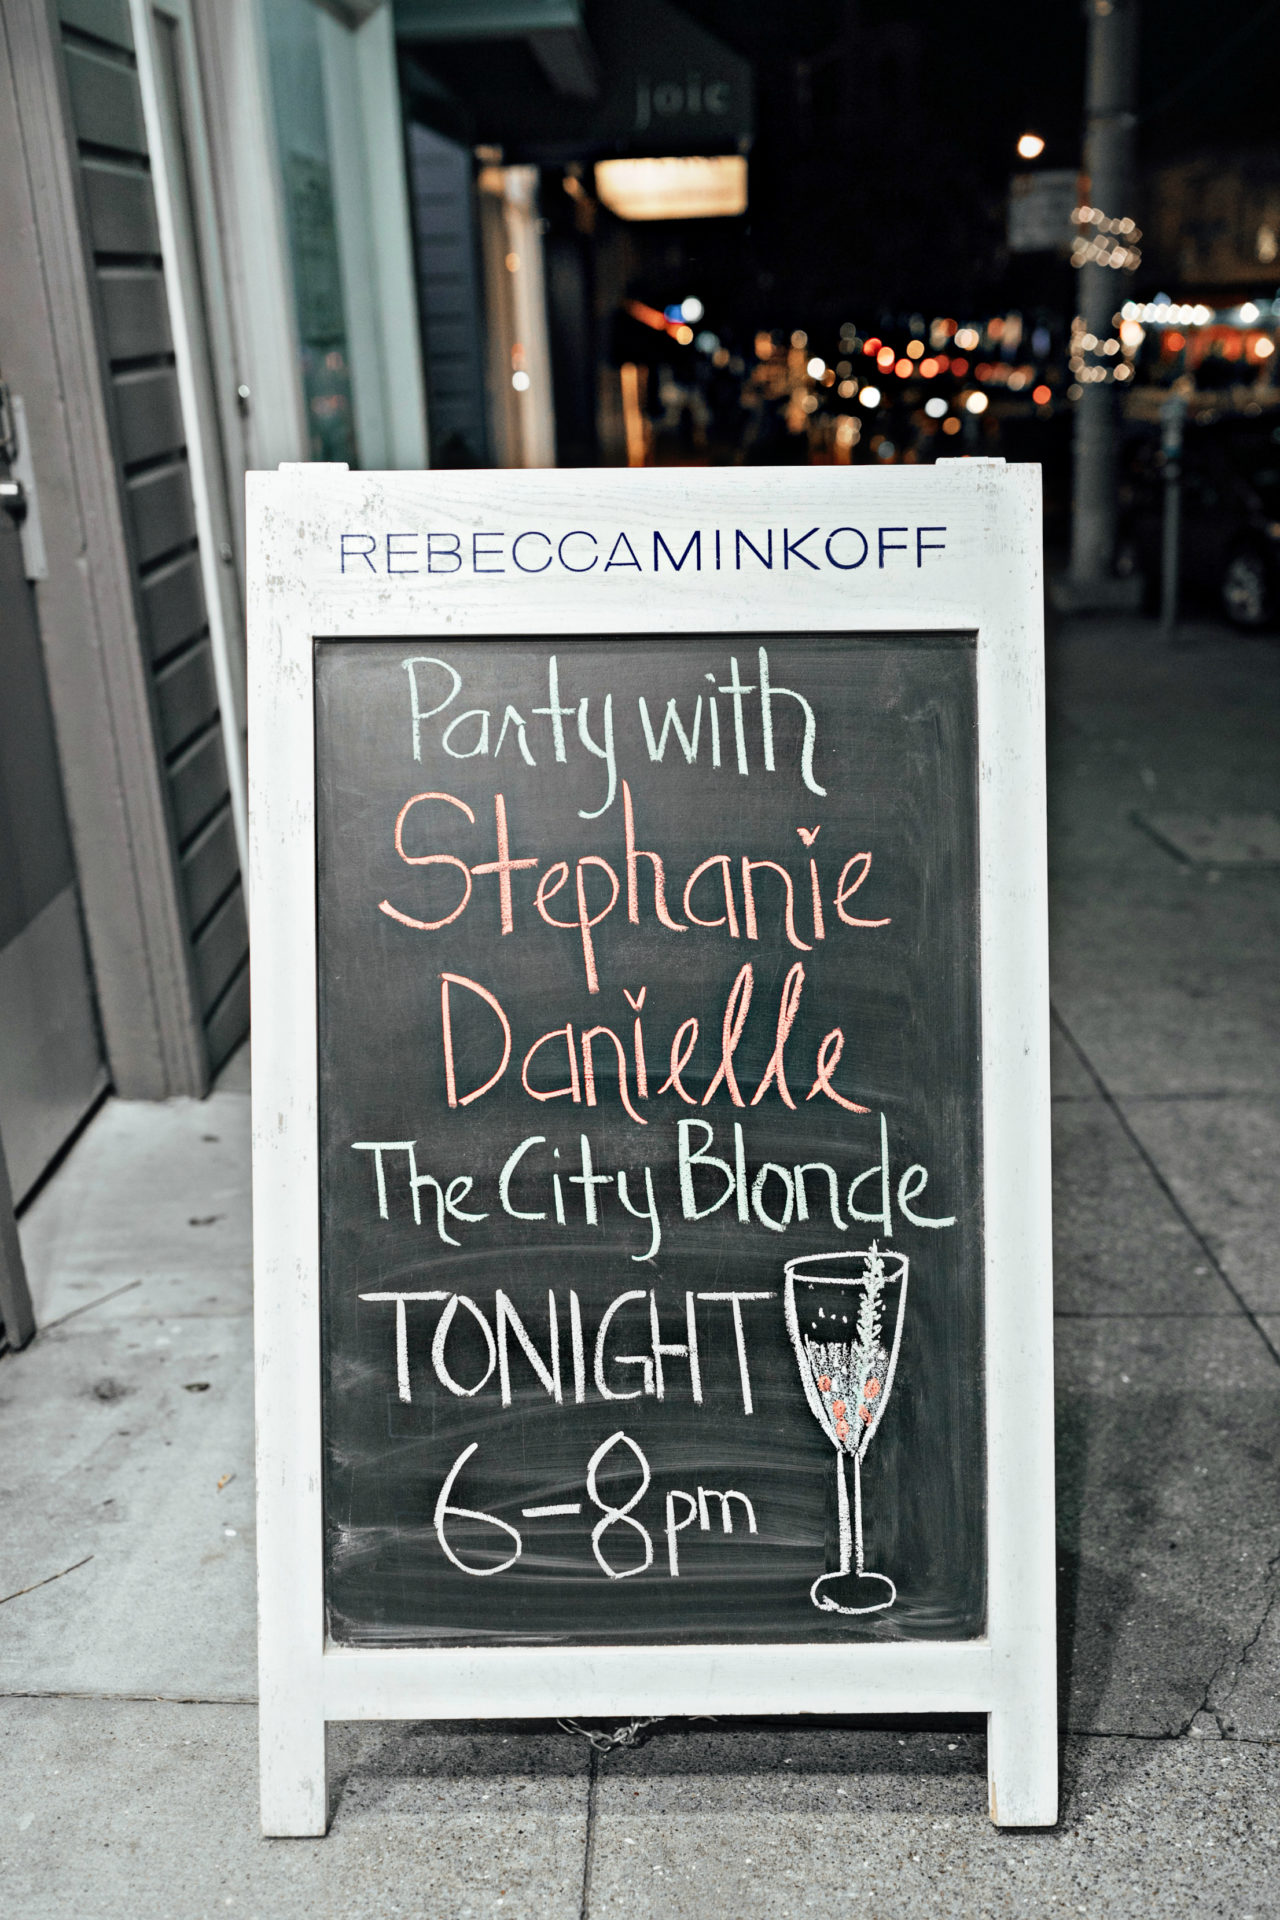 joie
REBECCAMINKOFF
Party with
Stephanie
Danielle
The City Blonde
TONIGHT
6-8pm